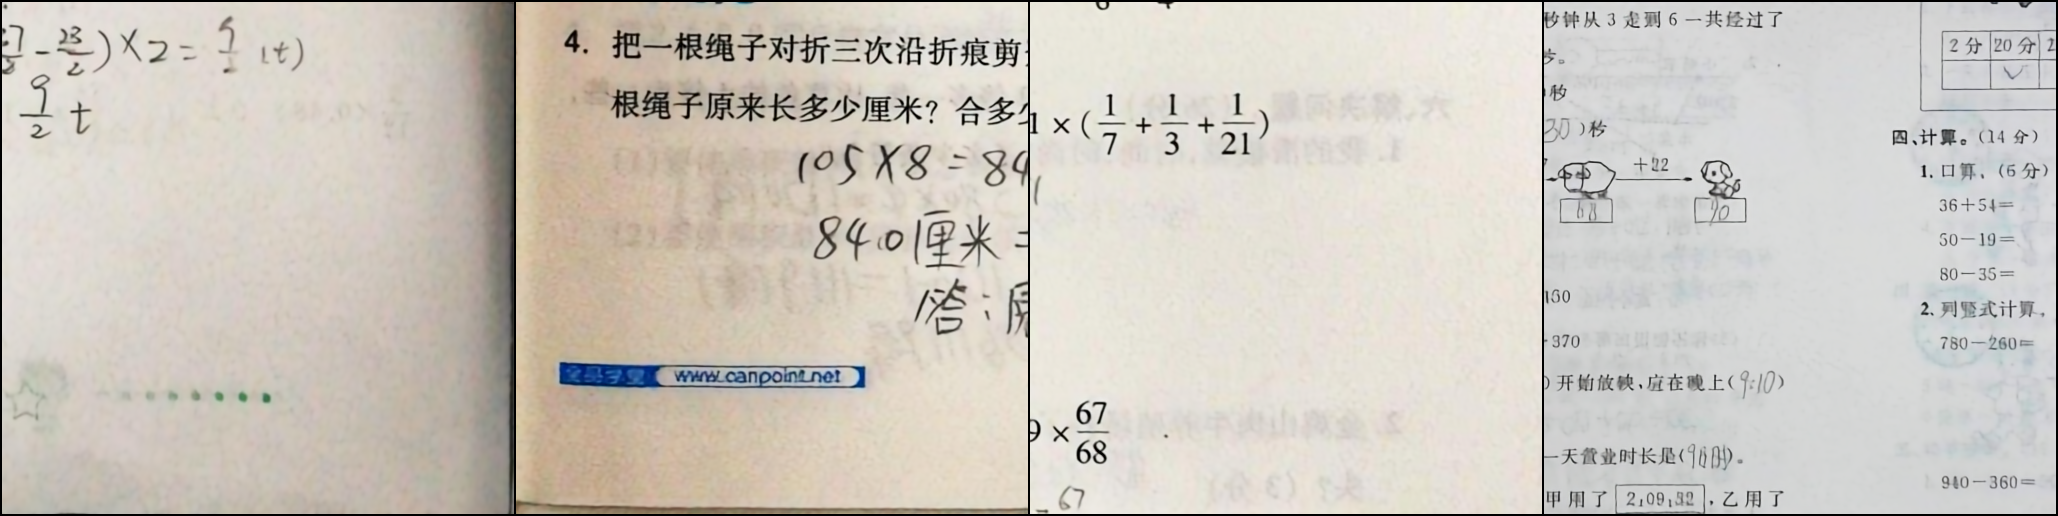 -23/2)×2=9/2(t)
9/2 t
4. 把一根绳子对折三次沿折痕剪
根绳子原来长多少厘米？合多
105×8=84
840厘米=
答：原
www.canpoint.net
1×(1/7+1/3+1/21)
9×67/68
67
秒钟从3走到6一共经过了
秒
30)秒
+22
68
90
160
370
)开始放映，应在晚上(9:10)
一天营业时长是(
甲用了 2:09:32，乙用了
2分 20分 2
✓
四、计算。(14分)
1. 口算。(6分)
36+54=
50-19=
80-35=
2. 列竖式计算。
780-260=
940-360=